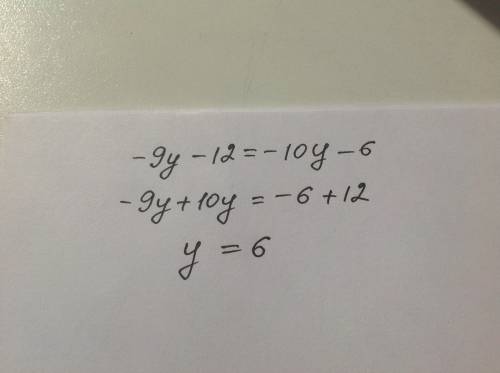 -9y -12 = -10y - 6
-9y + 10y = -6 + 12
y = 6